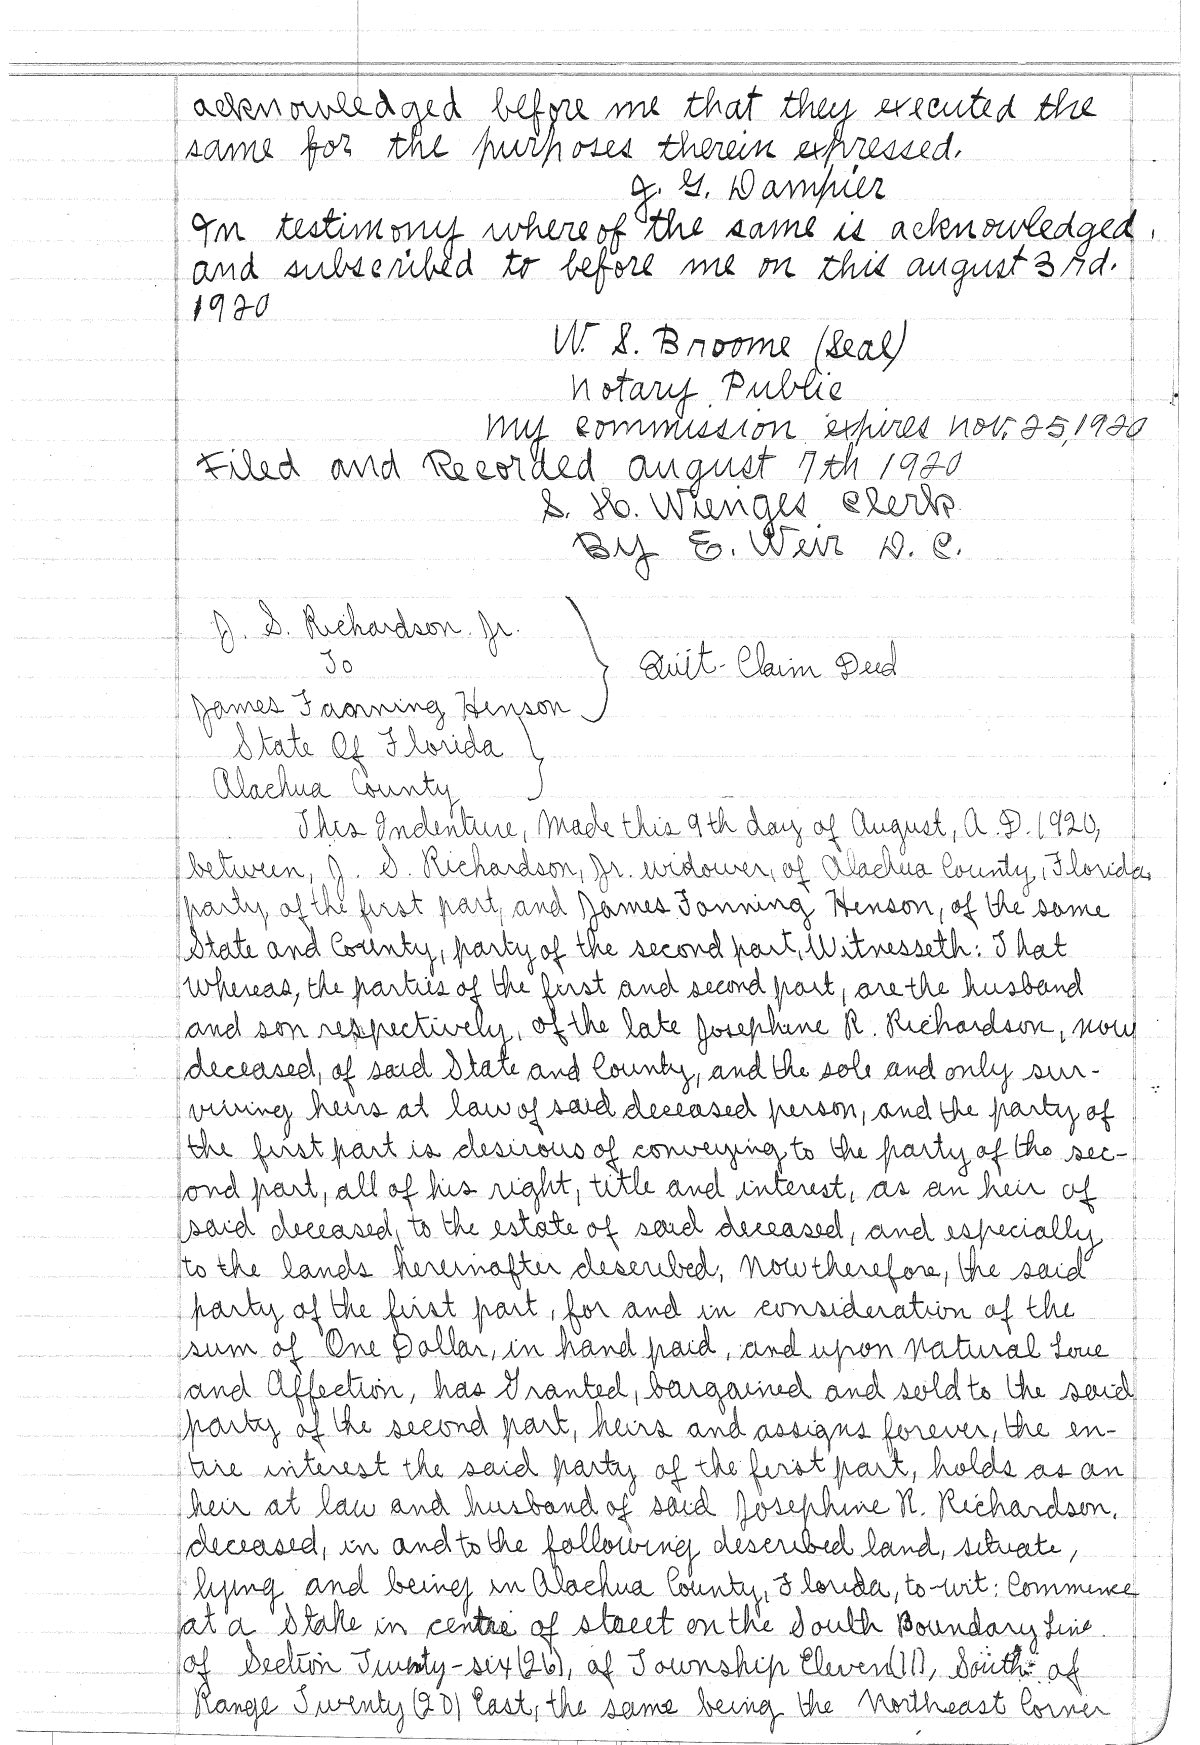 acknowledged before me that they executed the
same for the purposes therein expressed.
J. G. Dampier
In testimony whereof the same is acknowledged,
and subscribed to before me on this august 3rd.
1920
W. S. Broome (Seal)
Notary Public
My commission expires nov. 25, 1920
Filed and Recorded august 7th 1920
S. H. Wienges Clerk
By E. Weir D. C.
J. S. Richardson Jr.
To
James Fanning Henson
Quit-Claim Deed
State Of Florida
Alachua County
This Indenture, Made this 9th day of August, A. D. 1920,
between, J. S. Richardson, Jr. widower, of Alachua County, Florida,
party, of the first part, and James Fanning Henson, of the same
State and County, party of the second part, Witnesseth: That
whereas, the parties of the first and second part, are the husband
and son respectively, of the late Josephine R. Richardson, now
deceased, of said State and County, and the sole and only sur-
viving heirs at law of said deceased person, and the party of
the first part is desirous of conveying to the party of the sec-
ond part, all of his right, title and interest, as an heir of
said deceased, to the estate of said deceased, and especially
to the lands hereinafter described, Now therefore, the said
party of the first part, for and in consideration of the
sum of One Dollar, in hand paid, and upon Natural Love
and Affection, has Granted, bargained and sold to the said
party of the second part, heirs and assigns forever, the en-
tire interest the said party of the first part, holds as an
heir at law and husband of said Josephine R. Richardson,
deceased, in and to the following described land, situate,
lying and being in Alachua County, Florida, to-wit: Commence
at a Stake in centre of street on the South Boundary Line
of Section Twenty-six (26), of Township Eleven (11), South of
Range Twenty (20) East, the same being the Northeast Corner